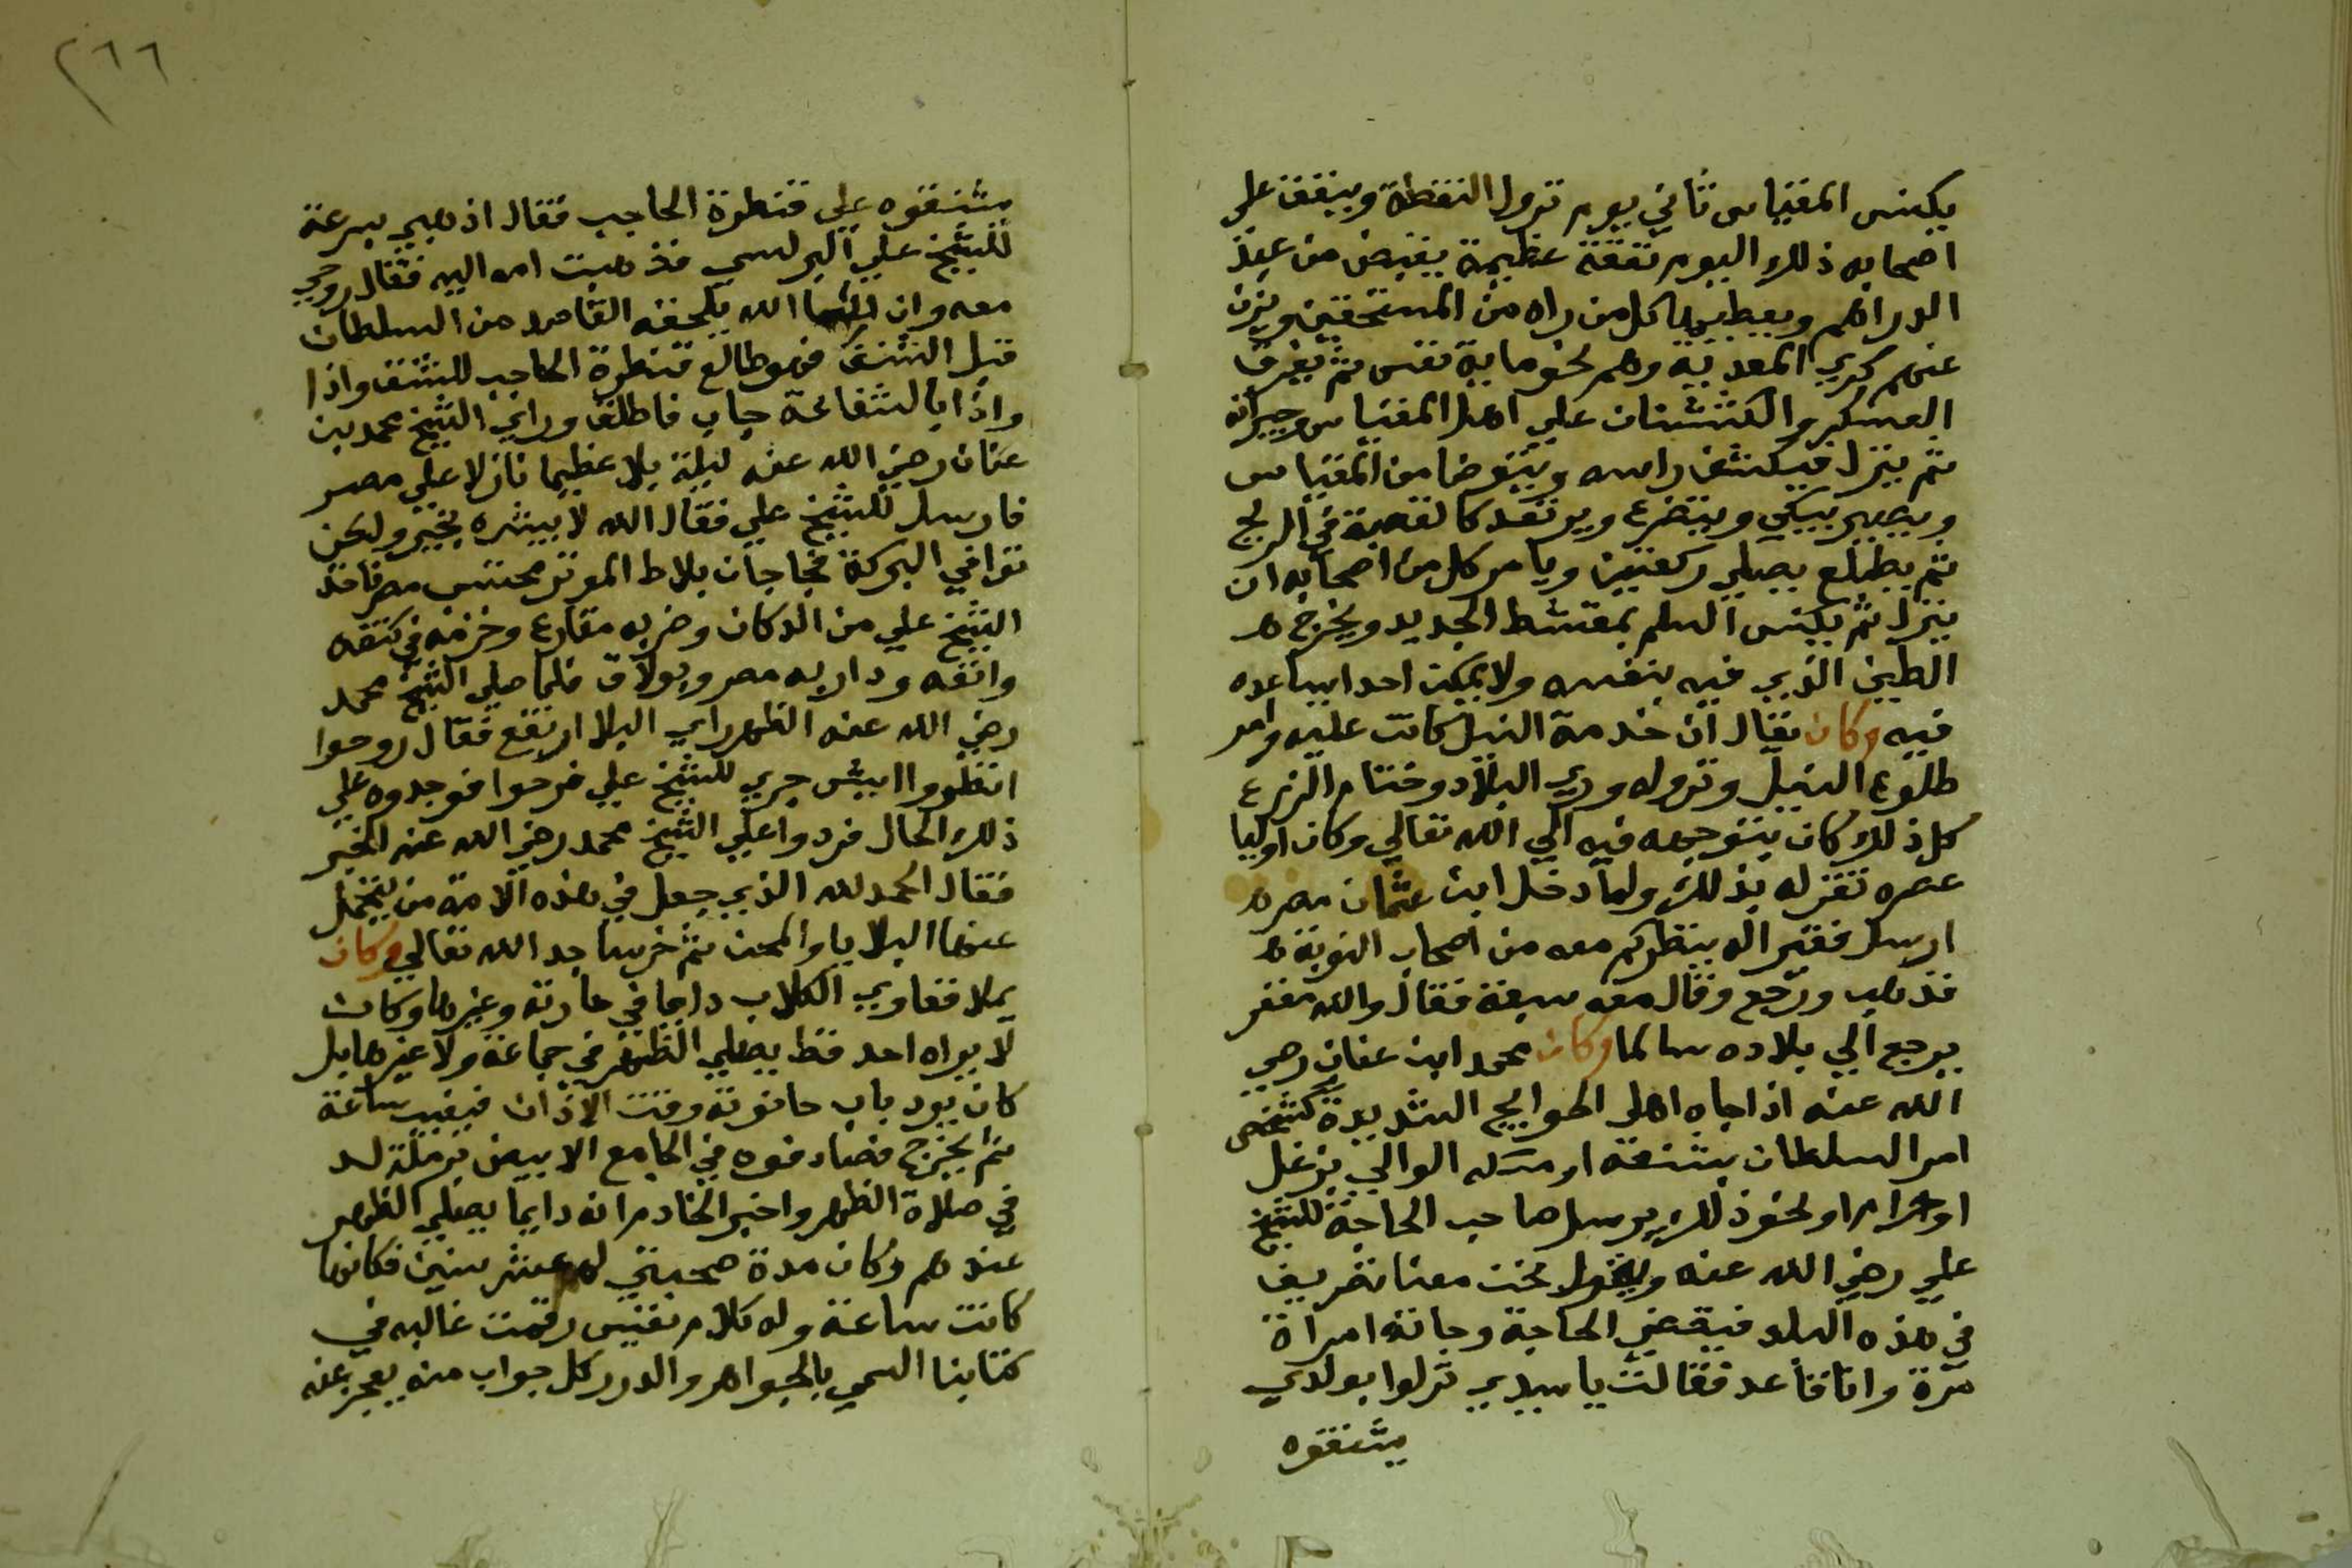 يكنس المقياس ثاني يوم نزول النقطة وينفق على
اصحابه ذلك اليوم نفقة عظيمة يقبض من عبه
الدراهم ويعطيها كل من راه من المستحقين ويزن
عنهم كري المعدية وهم نحو ماية نفس ثم يفرق
السكر والكشنان علي اهل المقياس وجيرانه
ثم ينزل فيكشف راسه ويتوضا من المقياس
ويصير يبكي ويتضرع ويرتعد كالقصبة في الريح
ثم يطلع يصلي ركعتين ويامر كل من اصحابه ان
ينزل ثم يكنس السلم بمقشط الحديد ويخرج
الطين الذي فيه بنفسه ولا يمكن احدا يساعده
فيه وكان يقال ان خدمة النيل كانت عليه وامر
طلوع النيل ونزوله وري البلاد وختام الزرع
كل ذلك كان يتوجه فيه الي الله تعالي وكان اوليا
عصره تقر له بذلك ولما دخل ابن عثمان مصر
ارسل فقيرا له ينظر كم معه من اصحاب النوبة
فذهب ورجع وقال معه سبعة فقال والله مغفر
يرجع الي بلاده سالما وكان محمد ابن عنان رضي
الله عنه اذا جاه اهل الحوايج الشديدة كشخص
امر السلطان بشنقه او مسكه الوالي بزغل
او حرام او نحو ذلك يرسل صاحب الحاجة للشيخ
علي رضي الله عنه ويقول نحن معنا تصريف
في هذه البلد فيقضي الحاجة وجاته امراة
مرة وانا قاعد فقالت يا سيدي نزلوا بولدي
يشنقوه
٢٦٦
يشنقوه علي قنطرة الحاجب فقال اذهبي بسرعة
للشيخ علي البرلسي فذهبت امه اليه فقال روحي
معه وان شا الله يلحقه القاصد من السلطان
قبل الشنق فهو طالع قنطرة الحاجب للشنق واذا
واذا بالشفاعة جات فاطلق وراي الشيخ محمد بن
عنان رضي الله عنه ليلة بلا عظيما نازلا علي مصر
فارسل للشيخ علي فقال الله لا يبشره بخير ولكن
توافي البركة فجا جان بلاط المؤتر محتسب مصر فاخذ
الشيخ علي من الدكان وضربه مقارع وخزمه في كتفه
وانفه ودار به مصر وبولاق فلما صلي الشيخ محمد
رضي الله عنه الظهر راي البلا ارتفع فقال روحوا
انظروا ايش جري للشيخ علي فرحوا فوجدوه علي
ذلك الحال فردوا علي الشيخ محمد رضي الله عنه الخبر
فقال الحمد لله الذي جعل في هذه الامة من يتحمل
عنها البلايا والمحن ثم خر ساجد الله تعالي وكان
يملا قعاوي الكلاب دايما في حارته وغيرها وكان
لا يراه احد قط يصلي الظهر في جماعة ولا غيرها بل
كان يرد باب حانوته وقت الاذان فيغيب ساعة
ثم يخرج فصادفوه في الجامع الابيض برملة لد
في صلاة الظهر واخبر الخادم انه دايما يصلي الظهر
عندهم وكان مدة صحبتي له عشر سنين فكانها
كانت ساعة وله كلام نفيس رقمت غالبه في
كتابنا السمي بالجواهر والدرر كل جواب منه يعجز عنه